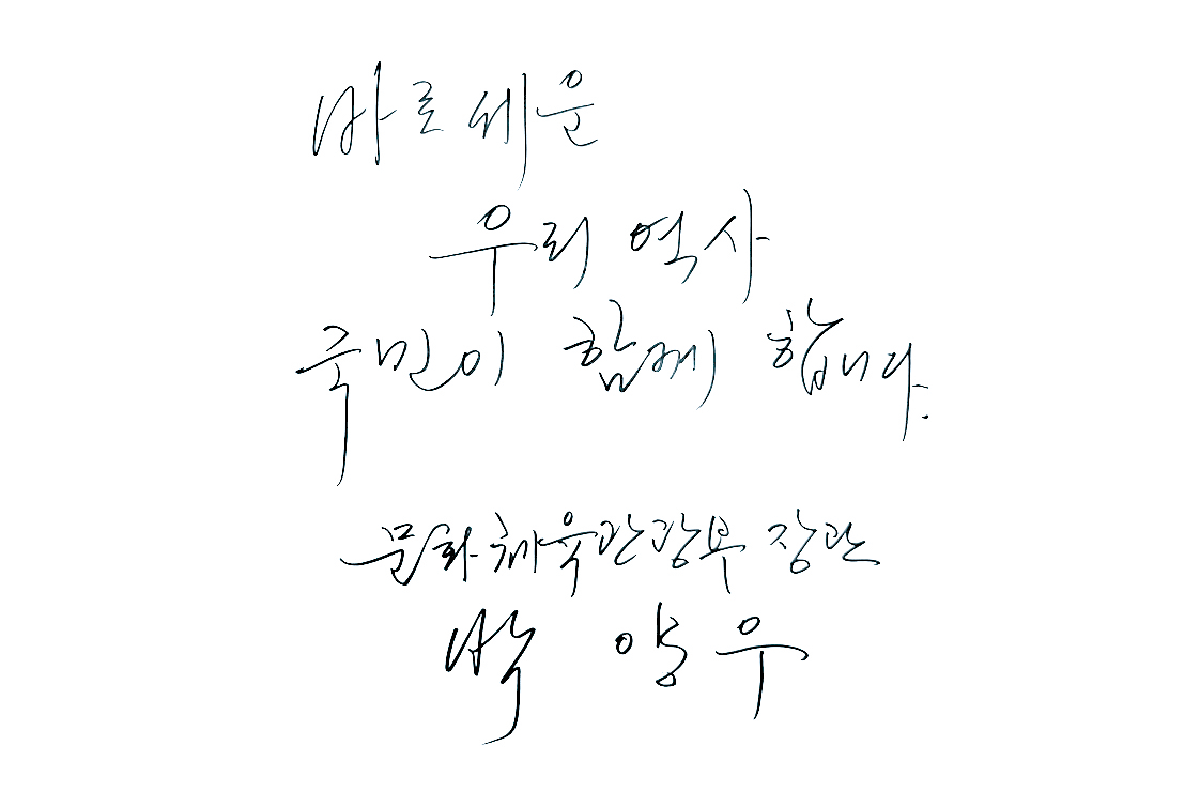 바로 세운
우리 역사
국민이 함께 합니다.
문화체육관광부 장관
박 양 우